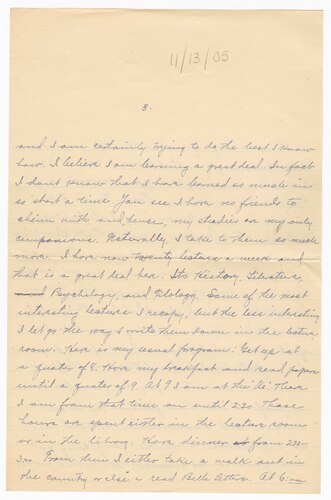 11/13/05
3.
and I am certainly trying to do the best I know
how. I believe I am learning a great deal. In fact
I don't know that I have learned so much in
so short a time. You see I have no friends to
chum with and, hence, my studies are my only
companions. Naturally, I take to them so much
more. I have now twenty lectures a week and
that is a great deal here. Its History, Literature,
Psychology, and Pedology. Some of the most
interesting lectures I recopy, but the less interesting
I let go the way I write them down in the lecture
room. Here is my usual program: Get up at
a quarter of 8. Have my breakfast and read papers
until a quarter of 9. At 9 I am at the "U." There
I am from that time on until 2:30. Those
hours are spent either in the lecture room
or in the library. Have dinner from 2:30-
3:00. From then I either take a walk out in
the country or else read Belle Lettres. At 6:00